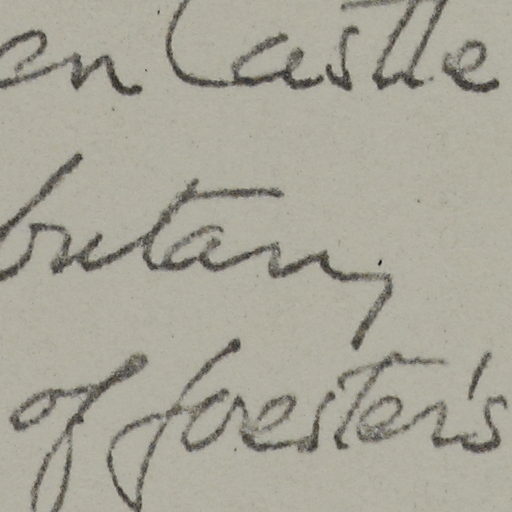 en Castle
butary
of forester's